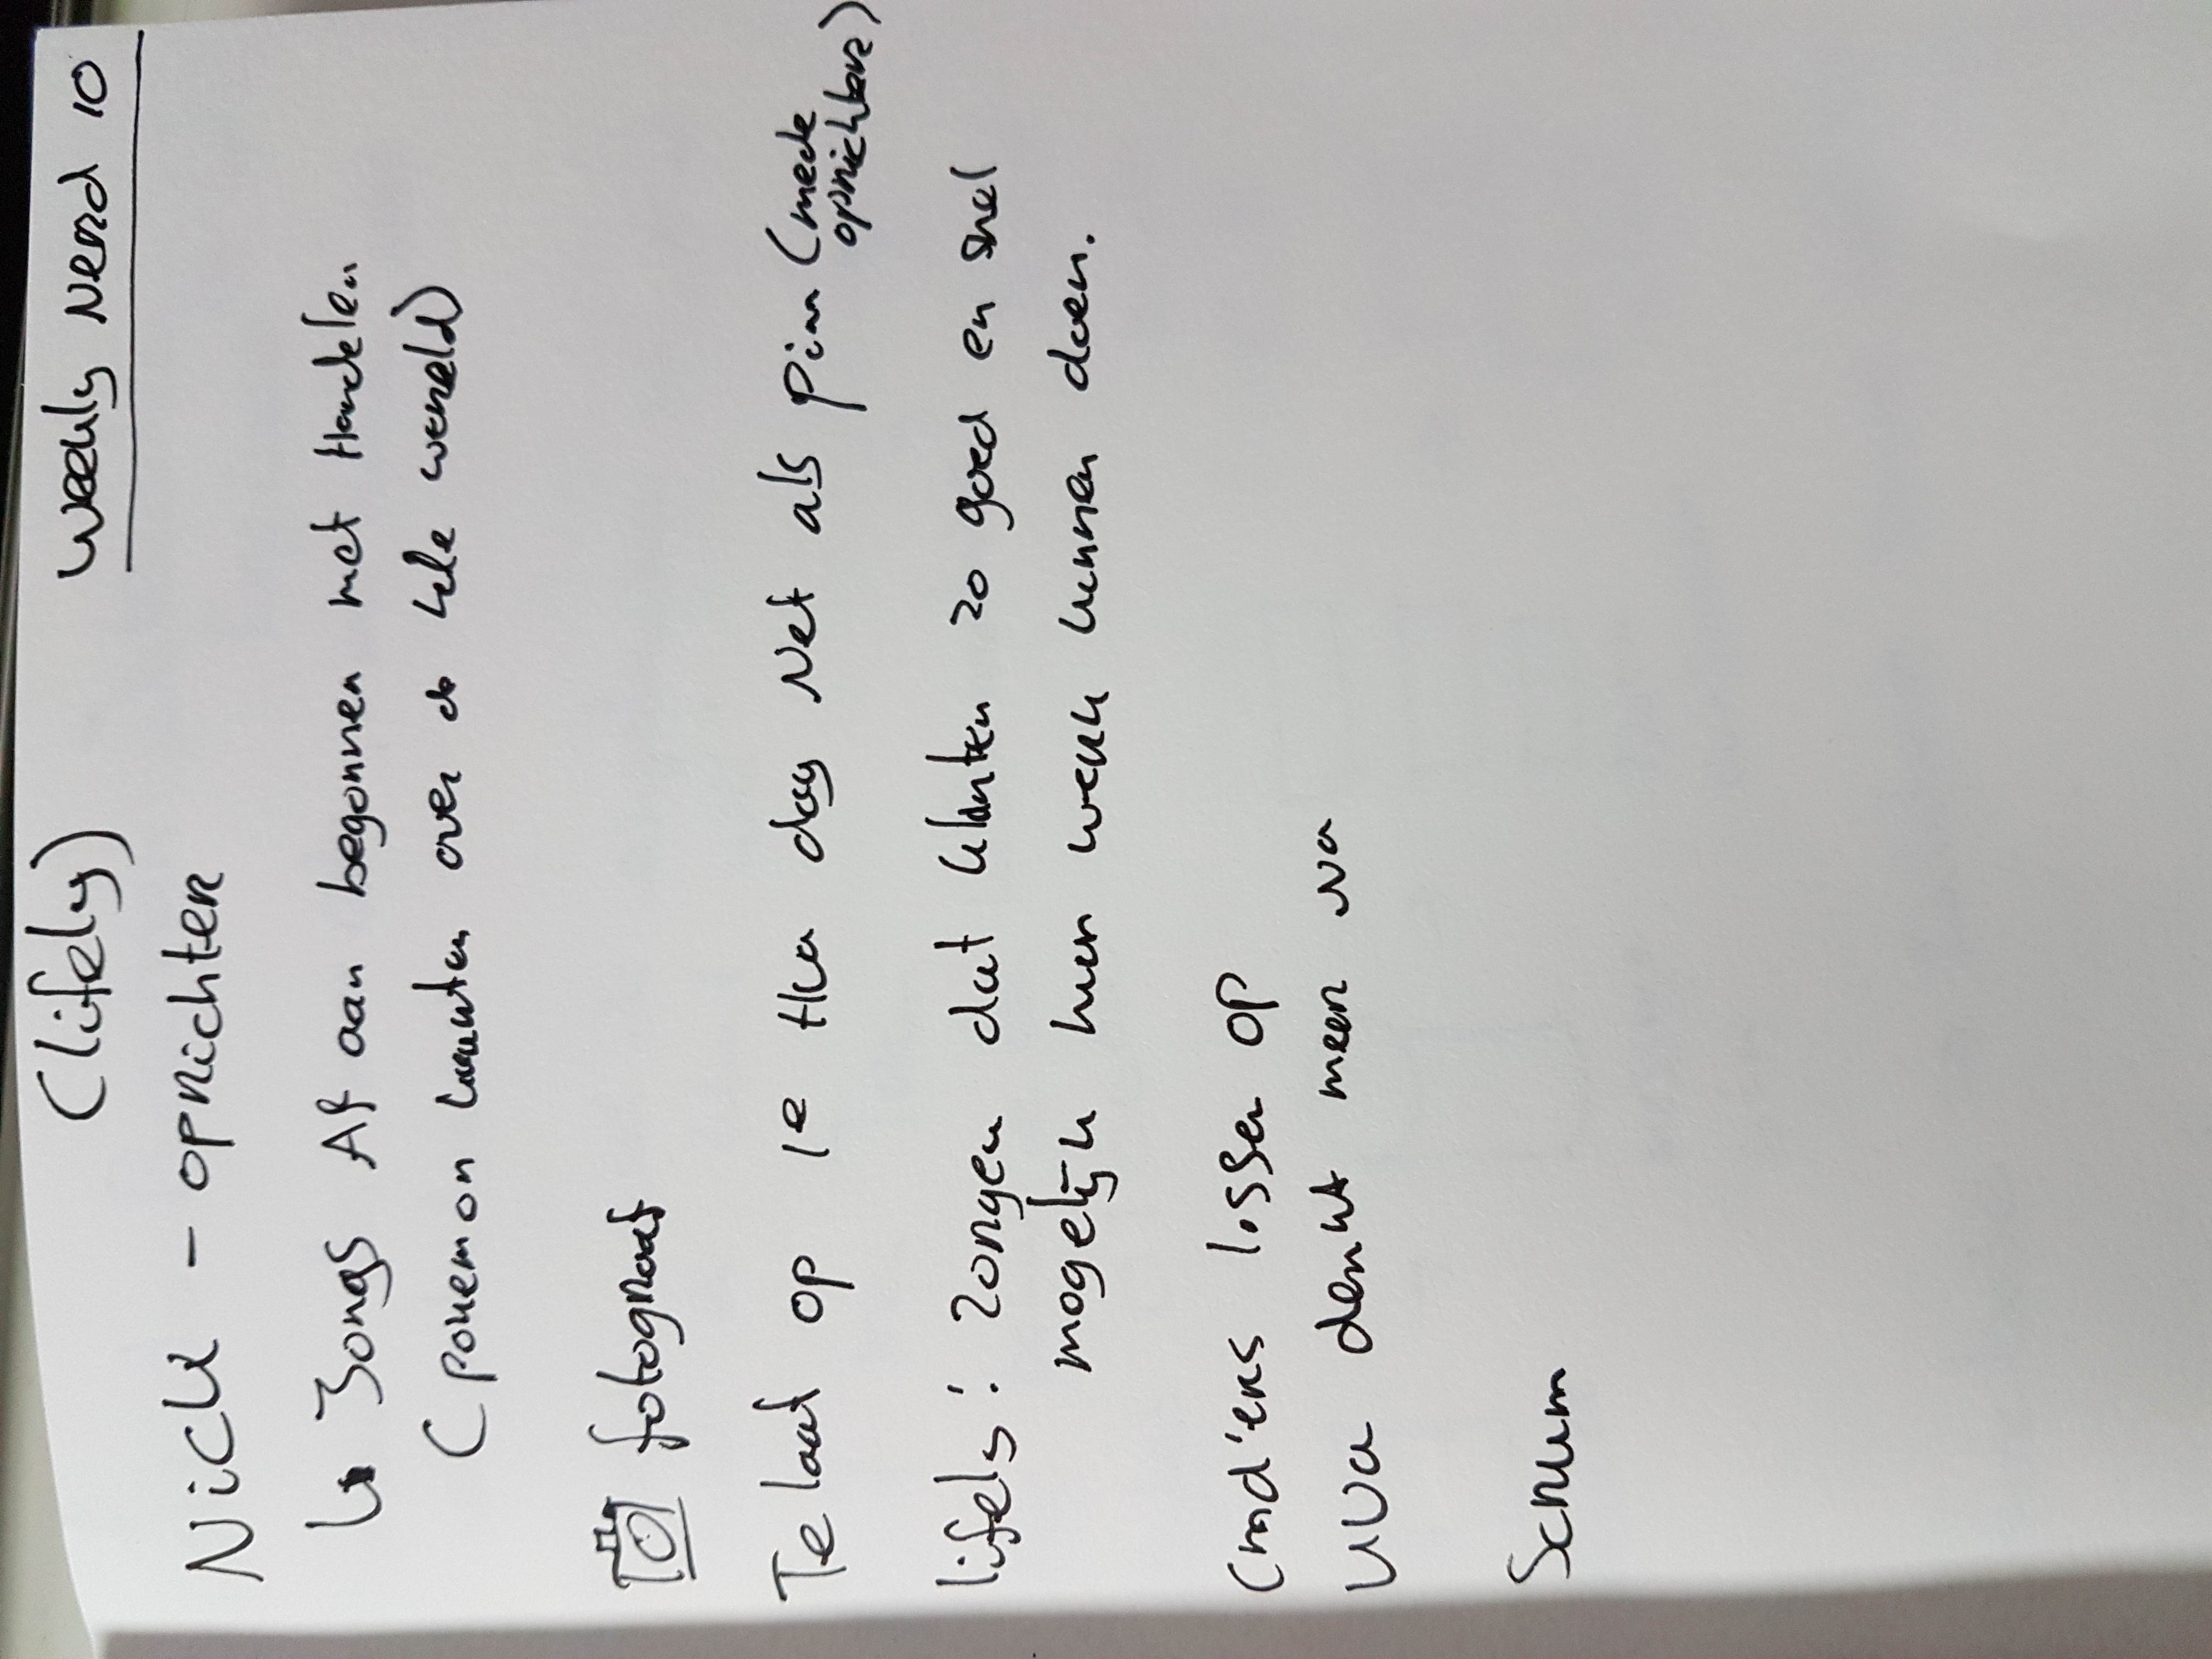 (lifely)
Weekly Nerd 10
Nick - oprichter
↳ Jongs Af aan begonnen met Handelen
(pokemon kaarten over de hele wereld)
fotograaf
Te laat op 1e Hva dag Net als pim (mede
oprichter)
lifely: zorgen dat klanten zo goed en snel
mogelijk hun werk kunnen doen.
Cmd'ers lossen op
UVa denkt meer na
Scrum